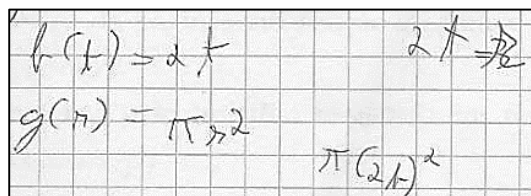 h(t) = 2t
2t =
g(r) = πr²
π(2t)²